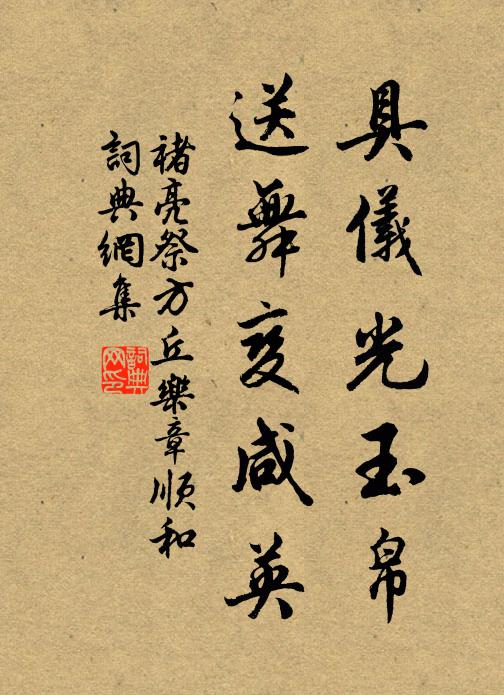 具儀光玉帛
送舞变咸英
褚亮祭方丘樂章順和
詞典網集
詞典
网印